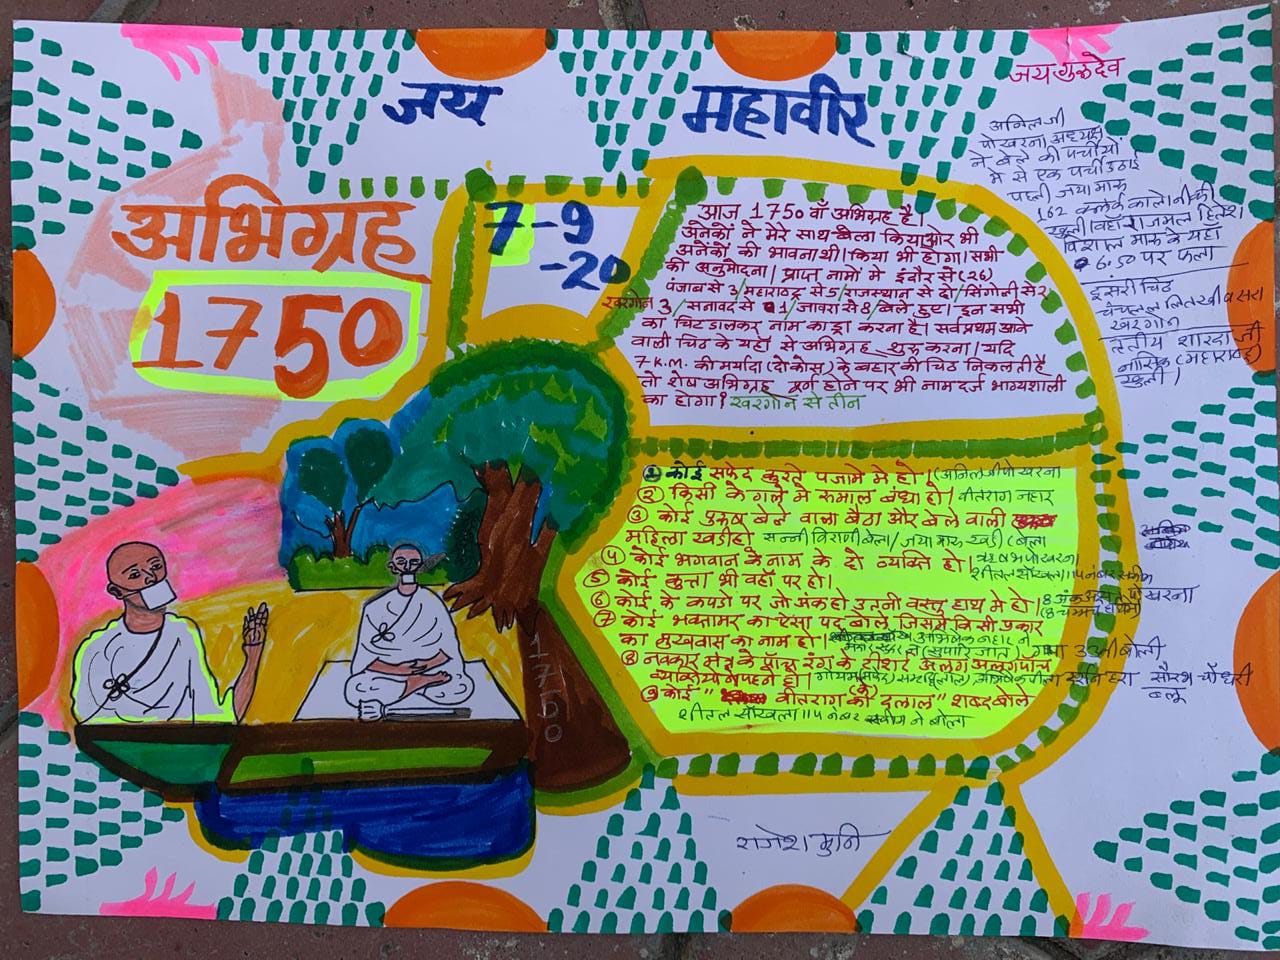 जय महावीर
जय गुरुदेव
अभिग्रह
1750
7-9
-20
आज 1750 वाँ अभिग्रह है।
अनेकों ने मेरे साथ बेला किया और भी
अनेकों की भावना थी। किया भी होगा। सभी
की अनुमोदना। प्राप्त नामों में इंदौर से (26)
पंजाब से 3/महाराष्ट्र से 5/राजस्थान से दो/सिंगोली से 2
खरगोन 3/सनावद से 1/जावरा से 8/बेले हुए। इन सभी
का चिट डालकर नाम का ड्रा करना है। सर्वप्रथम आने
वाली चिट के यहाँ से अभिग्रह शुरू करना। यदि
7 K.M. की मर्यादा (दो कोस) के बहार की चिट निकलती है
तो शेष अभिग्रह पूर्ण होने पर भी नाम दर्ज भाग्यशाली
का होगा। खरगोन से तीन
अनिल जी
पोखरना अध्यक्ष
ने बेले की पर्चीयों
में से एक पर्ची उठाई
पहली जया मारू
162 कालोनी की
खुली। वहाँ राजमल हितेश
विशाल मारू के यहाँ
6.50 पर फला
दूसरी चिट
खरगोन
तृतीय शारदा जी
नासिक (महाराष्ट्र)
खुली।
① कोई सफेद कुरते पजामे में हो। (अनिल जी पोखरना
② किसी के गले में रुमाल बंधा हो। वीतराग नहार
③ कोई पुरुष बेले वाला बैठा और बेले वाली
महिला खडी हो सन्नी विराणी बेला/जया मारू खडी (बेला
④ कोई भगवान के नाम के दो व्यक्ति हो। ऋषभ पोखरना
शीतल साँखला 114 नंबर स्कीम
⑤ कोई कुत्ता भी वहाँ पर हो।
⑥ कोई के कपडो पर जो अंक हो उतनी वस्तु हाथ में हो। 8 अंक पोखरना
(8 चम्मच हाथ में)
⑦ कोई भक्तामर का ऐसा पद बोले जिसमें किसी प्रकार
का मुखवास का नाम हो। अभिषेक नहार ने
(सुपारिजात) गाथा 33वी बोली
⑧ नवकार मंत्र के पाँच रंग के टीशर्ट अलग अलग पाँच
व्यक्तियो ने पहने हो। हरा सौरभ चौधरी
ब्लू
⑨ कोई "वीतराग के दलाल" शब्द बोले
शीतल साँखला 114 नंबर स्कीम ने बोला
1750
राजेश मुनि